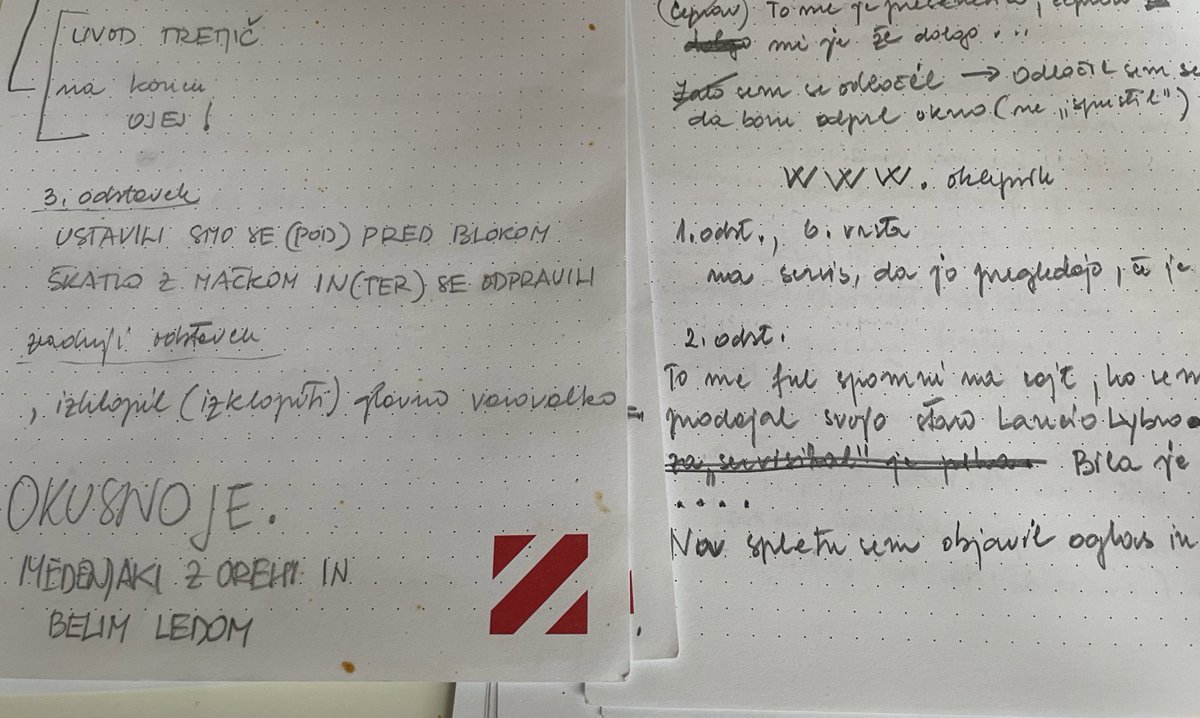 UVOD TREMIČ
na koncu
OJEJ!
3. odstavek
USTAVILI SMO SE (POD) PRED BLOKOM
ŠKATLO Z MAČKOM IN (TER) SE ODPRAVILI
zadnji odstavek
, izklopil (izklopiti) glavno varovalko =
OKUSNO JE.
MEDENJAKI Z OREHI IN
BELIM LEDOM
(čeprav) To me je
mi je že dolgo...
Zato sem se odločil → Odločil sem se
da bom odprl okno (ne „spustil")
WWW. oklepnik
1. odst., 6. vrsta
na servis, da jo pregledajo, če je
2. odst.
To me ful spomni na cajt, ko sem
prodajal svojo staro Lancio Lybro
Bila je
....
Na spletu sem objavil oglas in